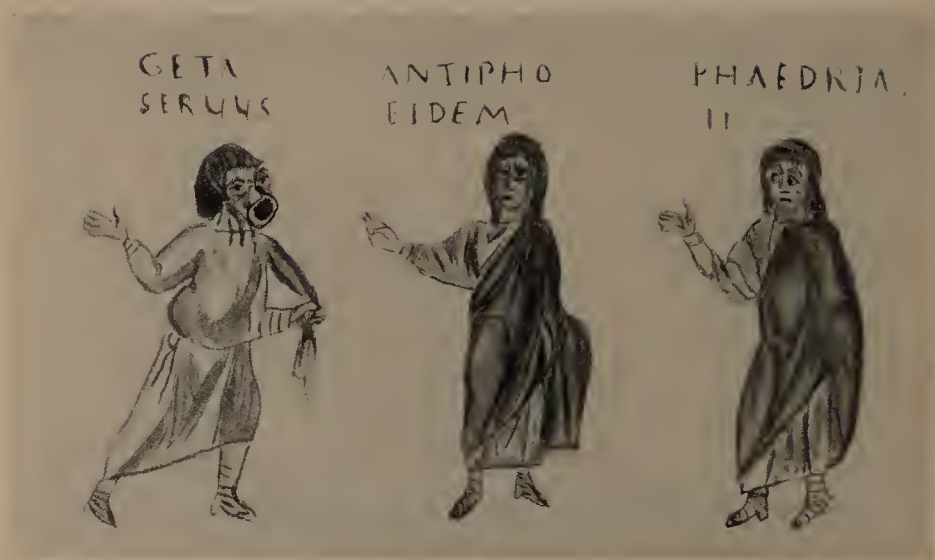 GETA
SERUUS
ANTIPHO
EIDEM
PHAEDRIA.
II